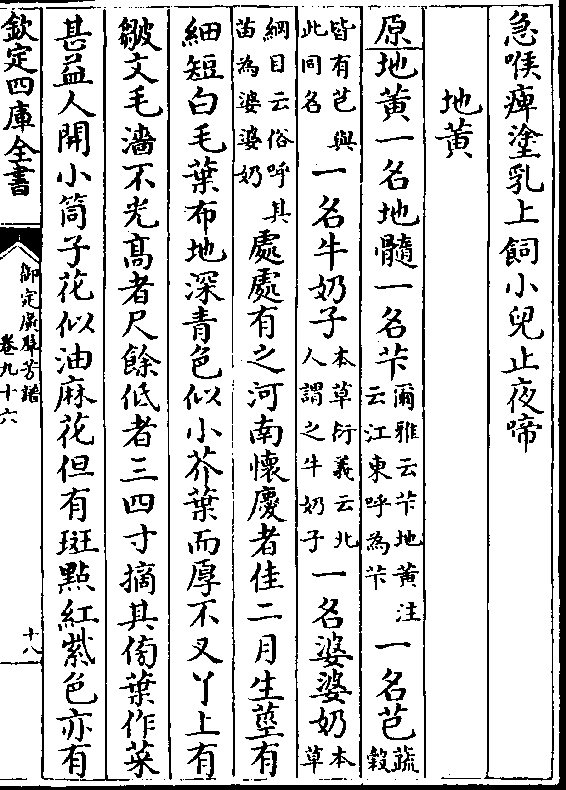 急喉痺塗乳上飼小兒止夜啼
地黃
原地黃一名地髓一名芐爾雅云芐地黃注云江東呼為芐一名芑蔬穀
皆有芑與此同名一名牛奶子本草衍義云北人謂之牛奶子一名婆婆奶本草
綱目云俗呼其苗為婆婆奶處處有之河南懷慶者佳二月生莖有
細短白毛葉布地深青色似小芥葉而厚不叉丫上有
皺文毛濇不光高者尺餘低者三四寸摘其傍葉作菜
甚益人開小筒子花似油麻花但有斑點紅紫色亦有
欽定四庫全書
御定廣群芳譜
卷九十六
十八